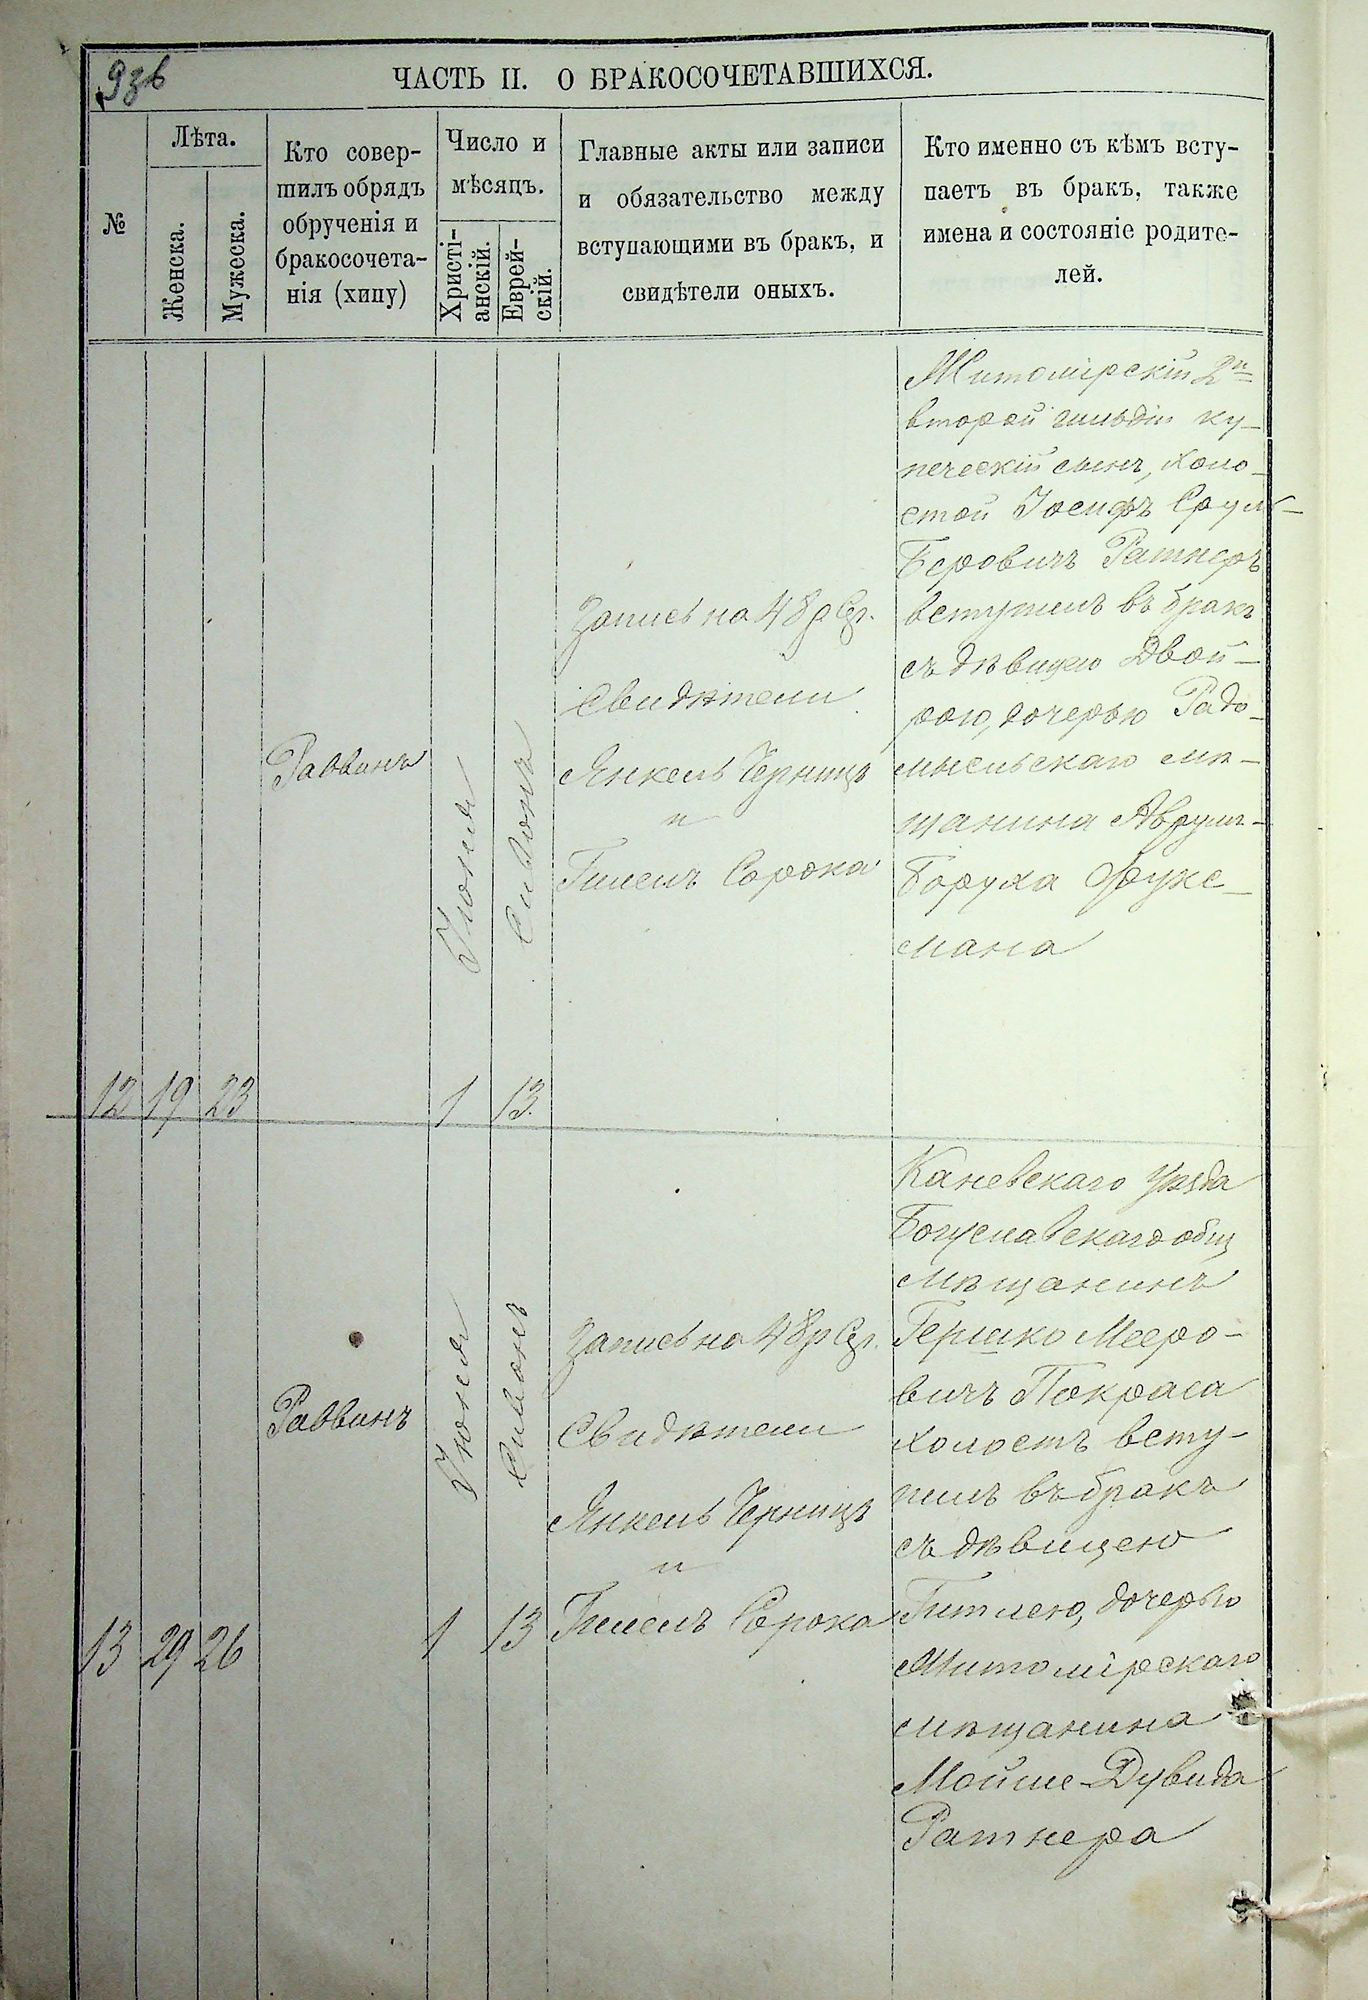 93б
ЧАСТЬ II. О БРАКОСОЧЕТАВШИХСЯ.
№
Лѣта.
Женска.
Мужеска.
Кто совер-
шилъ обрядъ
обрученія и
бракосочета-
нія (хипу)
Число и
мѣсяцъ.
Христі-
анскій.
Еврей-
скій.
Главные акты или записи
и обязательство между
вступающими въ бракъ, и
свидѣтели оныхъ.
Кто именно съ кѣмъ всту-
паетъ въ бракъ, также
имена и состояніе родите-
лей.
12
19
23
Раввинъ
Іюня
1
Сивонъ
13.
Запись на 48 р Ср.
Свидѣтели
Янкель Черницъ
и
Гилель Сорока
Житомірскій 2й
второй гильдіи ку-
печескій сынъ, холо-
стой Іосифъ Срул-
Беровичъ Ратнеръ
вступилъ въ бракъ
съ дѣвицею Двой-
рою, дочерью Радо-
мысльскаго мѣ-
щанина Аврумъ-
Боруха Фукс-
мана
13
29
26
Раввинъ
Іюня
1
Сивонъ
13
Запись на 48 р Ср.
Свидѣтели
Янкель Черницъ
и
Гилель Сорока
Каневскаго уѣзда
Богуславскаго общ
мѣщанинъ
Гершко Мееро-
вичъ Покраса
холостъ всту-
пилъ въ бракъ
съ дѣвицею
Гитлею, дочерью
Житомірскаго
мѣщанина
Мойше-Дувида
Ратнера